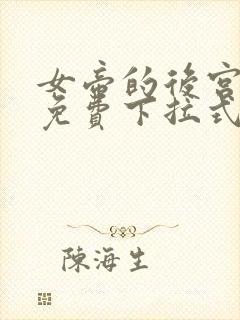 女帝的後宮
免費下拉式
陳海生